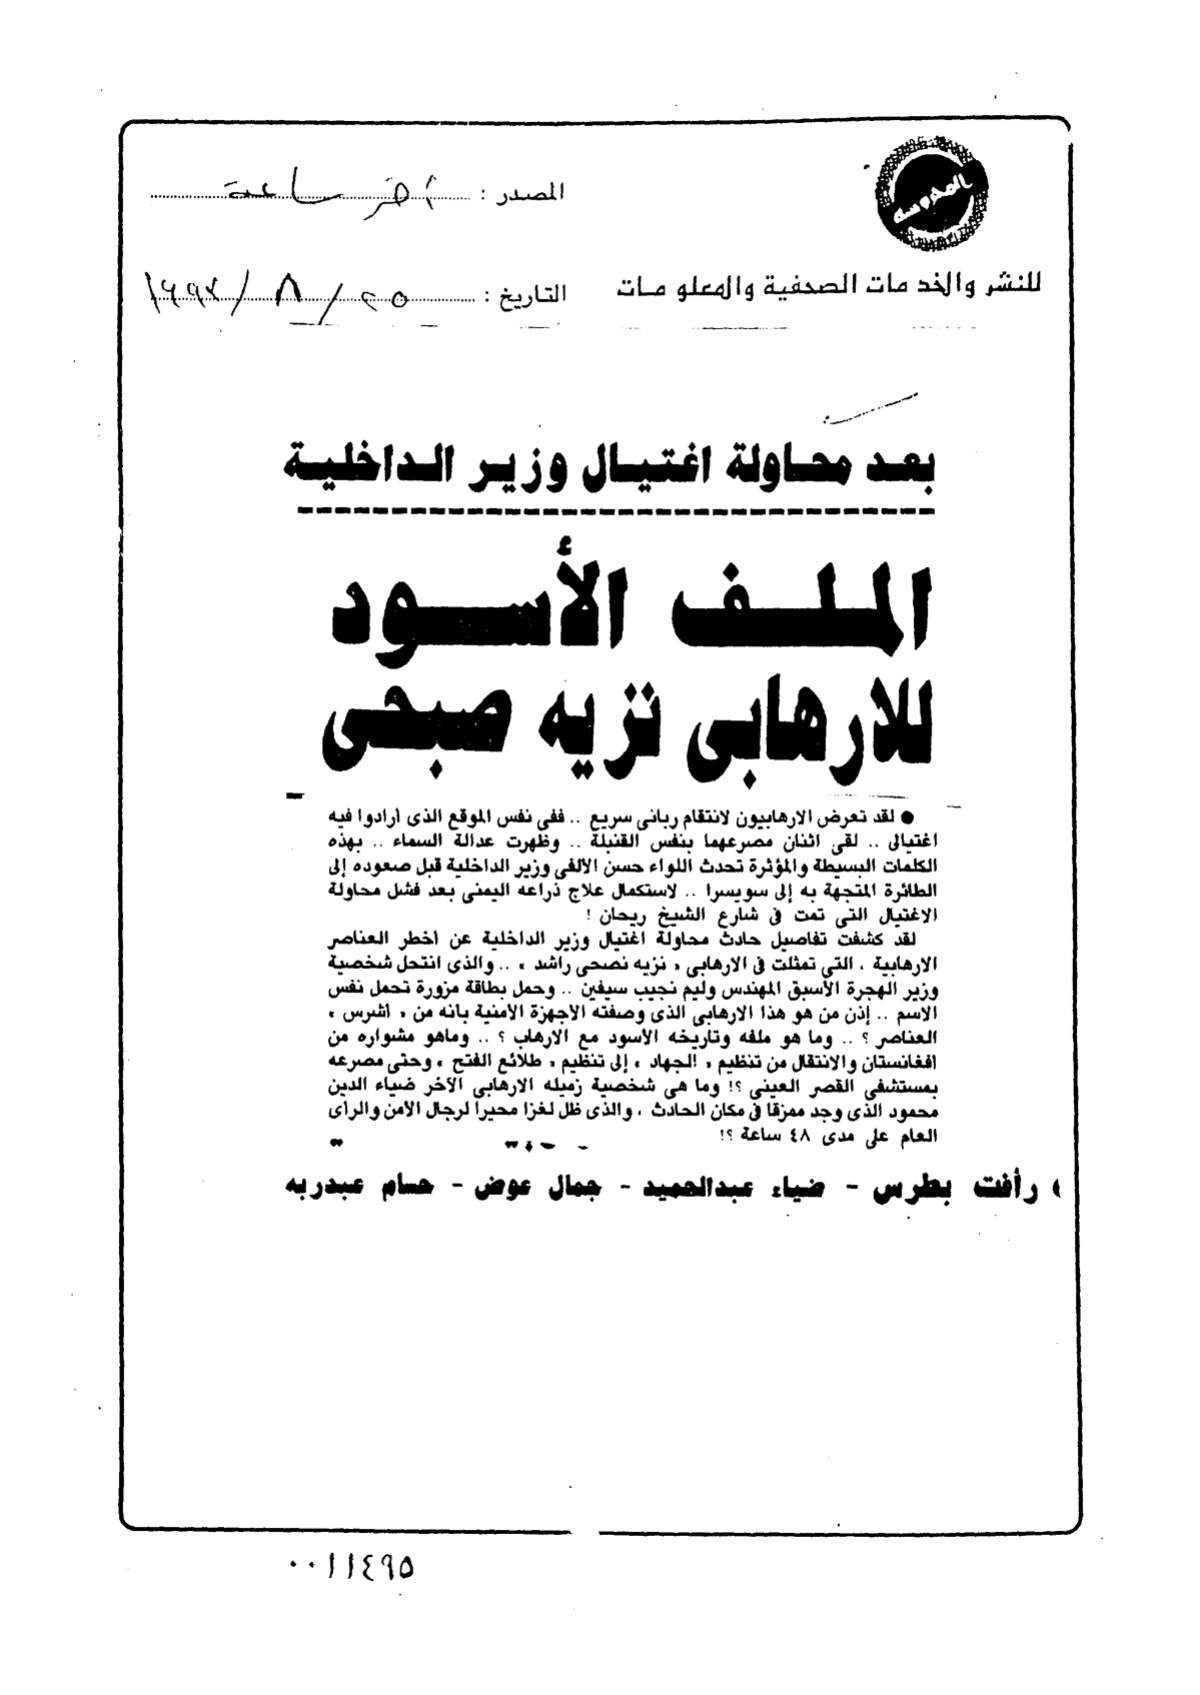 المحروسة
المصدر : آخر ساعة
للنشر والخدمات الصحفية والمعلومات
التاريخ : ٢٥ / ٨ / ١٩٩٣
بعد محاولة اغتيال وزير الداخلية
الملف الأسود
للارهابى نزيه صبحى
● لقد تعرض الارهابيون لانتقام ربانى سريع .. ففى نفس الموقع الذى أرادوا فيه
اغتيالى .. لقى اثنان مصرعهما بنفس القنبلة .. وظهرت عدالة السماء .. بهذه
الكلمات البسيطة والمؤثرة تحدث اللواء حسن الالفى وزير الداخلية قبل صعوده إلى
الطائرة المتجهة به إلى سويسرا .. لاستكمال علاج ذراعه اليمنى بعد فشل محاولة
الاغتيال التى تمت فى شارع الشيخ ريحان !
لقد كشفت تفاصيل حادث محاولة اغتيال وزير الداخلية عن أخطر العناصر
الارهابية ، التى تمثلت فى الارهابى « نزيه نصحى راشد » .. والذى انتحل شخصية
وزير الهجرة الأسبق المهندس وليم نجيب سيفين .. وحمل بطاقة مزورة تحمل نفس
الاسم .. إذن من هو هذا الارهابى الذى وصفته الأجهزة الأمنية بأنه من « أشرس »
العناصر ؟ .. وما هو ملفه وتاريخه الأسود مع الارهاب ؟ .. وماهو مشواره من
افغانستان والانتقال من تنظيم « الجهاد » إلى تنظيم « طلائع الفتح » وحتى مصرعه
بمستشفى القصر العينى ؟! وما هى شخصية زميله الارهابى الآخر ضياء الدين
محمود الذى وجد ممزقا فى مكان الحادث ، والذى ظل لغزا محيرا لرجال الأمن والرأى
العام على مدى ٤٨ ساعة ؟!
رأفت بطرس - ضياء عبدالحميد - جمال عوض - حسام عبدربه
٠٠١١٤٩٥